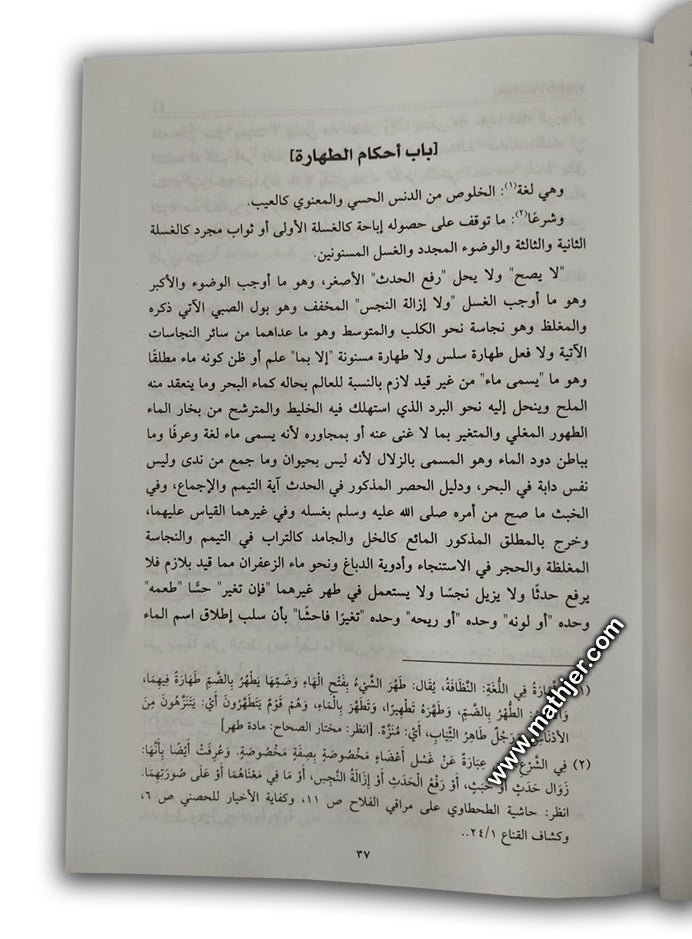 [باب أحكام الطهارة]
وهي لغة(١): الخلوص من الدنس الحسي والمعنوي كالعيب.
وشرعًا(٢): ما توقف على حصوله إباحة كالغسلة الأولى أو ثواب مجرد كالغسلة
الثانية والثالثة والوضوء المجدد والغسل المسنونين.
"لا يصح" ولا يحل "رفع الحدث" الأصغر، وهو ما أوجب الوضوء والأكبر
وهو ما أوجب الغسل "ولا إزالة النجس" المخفف وهو بول الصبي الآتي ذكره
والمغلظ وهو نجاسة نحو الكلب والمتوسط وهو ما عداهما من سائر النجاسات
الآتية ولا فعل طهارة سلس ولا طهارة مسنونة "إلا بما" علم أو ظن كونه ماء مطلقًا
وهو ما "يسمى ماء" من غير قيد لازم بالنسبة للعالم بحاله كماء البحر وما ينعقد منه
الملح وينحل إليه نحو البرد الذي استهلك فيه الخليط والمترشح من بخار الماء
الطهور المغلي والمتغير بما لا غنى عنه أو بمجاوره لأنه يسمى ماء لغة وعرفًا وما
بباطن دود الماء وهو المسمى بالزلال لأنه ليس بحيوان وما جمع من ندى وليس
نفس دابة في البحر، ودليل الحصر المذكور في الحدث آية التيمم والإجماع، وفي
الخبث ما صح من أمره صلى الله عليه وسلم بغسله وفي غيرهما القياس عليهما،
وخرج بالمطلق المذكور المائع كالخل والجامد كالتراب في التيمم والنجاسة
المغلظة والحجر في الاستنجاء وأدوية الدباغ ونحو ماء الزعفران مما قيد بلازم فلا
يرفع حدثًا ولا يزيل نجسًا ولا يستعمل في طهر غيرهما "فإن تغير" حسًّا "طعمه"
وحده "أو لونه" وحده "أو ريحه" وحده "تغيرًا فاحشًا" بأن سلب إطلاق اسم الماء
فِي اللُّغَةِ: النَّظَافَةُ، يُقَال: طَهُرَ الشَّيْءُ بِفَتْحِ الْهَاءِ وَضَمِّهَا يَطْهُرُ بِالضَّمِّ طَهَارَةً فِيهِمَا،
الطُّهْرُ بِالضَّمِّ، وَطَهَّرَهُ تَطْهِيرًا، وَتَطَهَّرَ بِالْمَاءِ، وَهُمْ قَوْمٌ يَتَطَهَّرُونَ أَيْ: يَتَنَزَّهُونَ مِنَ
الأَدْنَاسِ، وَرَجُلٌ طَاهِرُ الثِّيَابِ، أَيْ: مُنَزَّهٌ. [انظر: مختار الصحاح: مادة طهر]
(٢) فِي الشَّرْعِ عِبَارَةٌ عَنْ غَسْلِ أَعْضَاءٍ مَخْصُوصَةٍ بِصِفَةٍ مَخْصُوصَةٍ. وَعُرِفَتْ أَيْضًا بِأَنَّهَا:
زَوَال حَدَثٍ أَوْ خَبَثٍ، أَوْ رَفْعُ الْحَدَثِ أَوْ إِزَالَةُ النَّجِسِ، أَوْ مَا فِي مَعْنَاهُمَا أَوْ عَلَى صُورَتِهِمَا.
انظر: حاشية الطحطاوي على مراقي الفلاح ص ١١، وكفاية الأخيار للحصني ص ٦،
وكشاف القناع ٢٤/١..
٣٧
www.mathjer.com